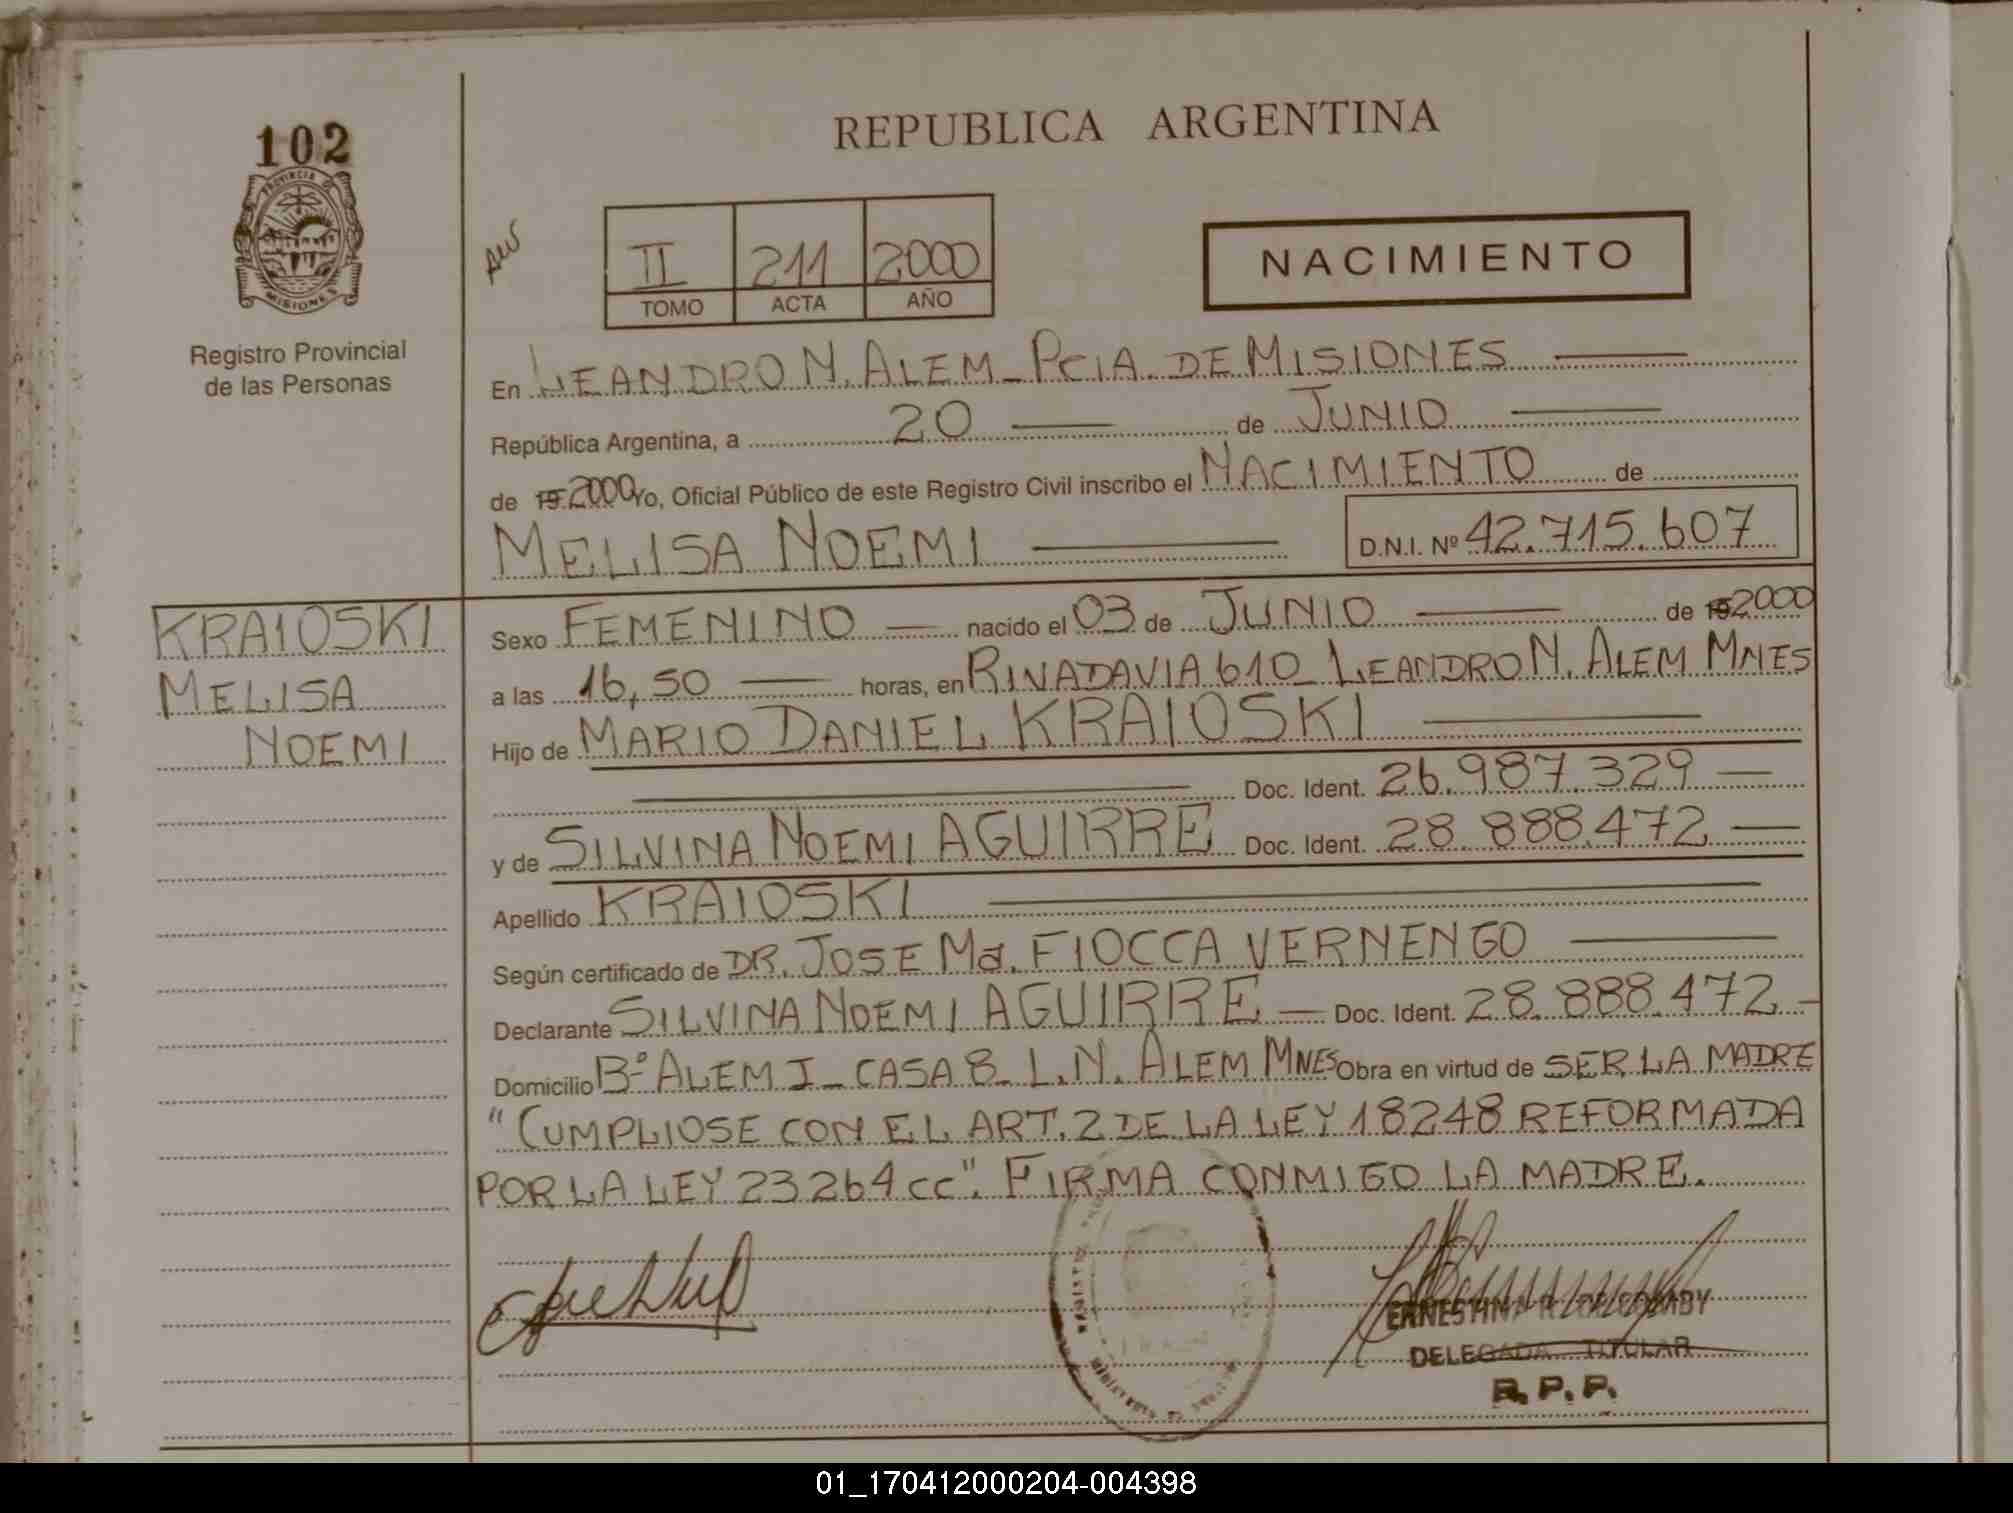 102
PROVINCIA DE
MISIONES
Registro Provincial
de las Personas
REPUBLICA ARGENTINA
II 211 2000
TOMO ACTA AÑO
NACIMIENTO
En LEANDRO N. ALEM - PCIA. DE MISIONES
República Argentina, a 20 de JUNIO
de 19 2000 Yo, Oficial Público de este Registro Civil inscribo el NACIMIENTO de
MELISA NOEMI D.N.I. Nº 42.715.607
KRAIOSKI
MELISA
NOEMI
Sexo FEMENINO nacido el 03 de JUNIO de 19 2000
a las 16,50 horas, en RIVADAVIA 610 - LEANDRO N. ALEM MNES
Hijo de MARIO DANIEL KRAIOSKI
Doc. Ident. 26.987.329
y de SILVINA NOEMI AGUIRRE Doc. Ident. 28.888.472
Apellido KRAIOSKI
Según certificado de DR. JOSE Ma. FIOCCA VERNENGO
Declarante SILVINA NOEMI AGUIRRE Doc. Ident. 28.888.472
Domicilio Bº ALEM I - CASA 8 - L.N. ALEM MNES Obra en virtud de SER LA MADRE
"CUMPLIOSE CON EL ART. 2 DE LA LEY 18248 REFORMADA
POR LA LEY 23264 cc". FIRMA CONMIGO LA MADRE.
DELEGADA TITULAR
R.P.P.
01_170412000204-004398